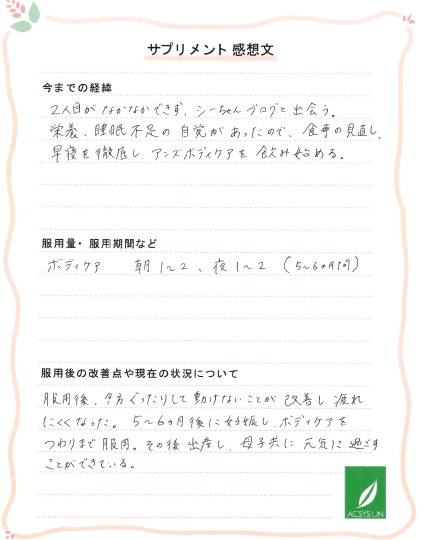 サプリメント感想文
今までの経緯
2人目がなかなかできず、シーちゃんブログと出会う。
栄養、睡眠不足の自覚があったので、食事の見直し、
早寝を徹底し、アンズボディケアを飲み始める。
服用量・服用期間など
ボディケア 朝1〜2、夜1〜2 (5〜6ヵ月間)
服用後の改善点や現在の状況について
服用後、夕方ぐったりして動けないことが改善し疲れ
にくくなった。5〜6ヵ月後に妊娠し、ボディケアを
つわりまで服用。その後出産し、母子共に元気に過ごす
ことができている。
ACSYSIJN